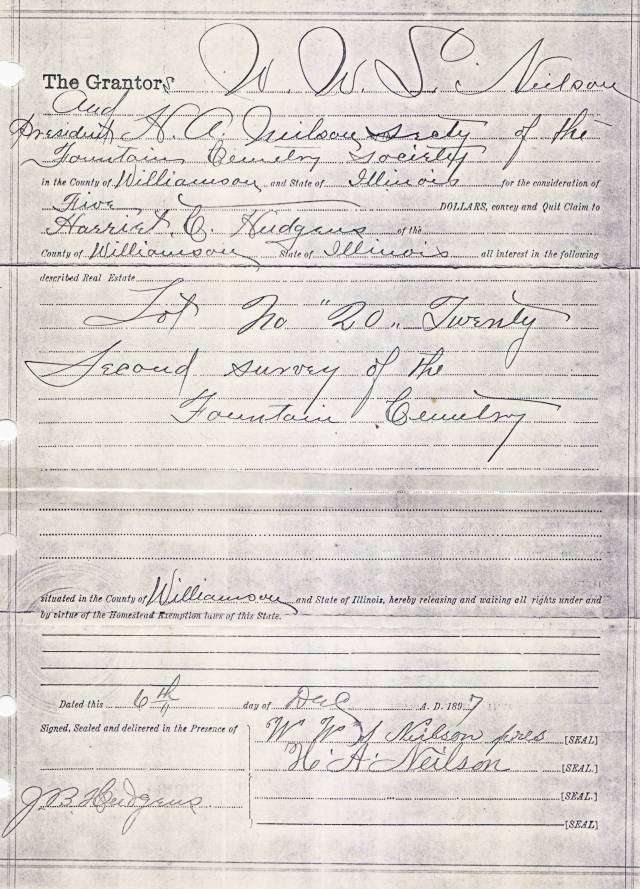 The Grantors W. W. S. Neilson
and
President H. A. Neilson Srety of the
Fountain Cemetry Society
in the County of Williamson and State of Illinois for the consideration of
Five DOLLARS, convey and Quit Claim to
Harriet C. Hudgens of the
County of Williamson State of Illinois all interest in the following
described Real Estate
Lot No "20" Twenty
Second survey of the
Fountain Cemetry
situated in the County of Williamson and State of Illinois, hereby releasing and waiving all rights under and
by virtue of the Homestead Exemption laws of this State.
Dated this 6th day of Dec A. D. 1897
Signed, Sealed and delivered in the Presence of
W W S Neilson pres [SEAL]
H. A. Neilson [SEAL.]
J B Hudgens
[SEAL.]
[SEAL]